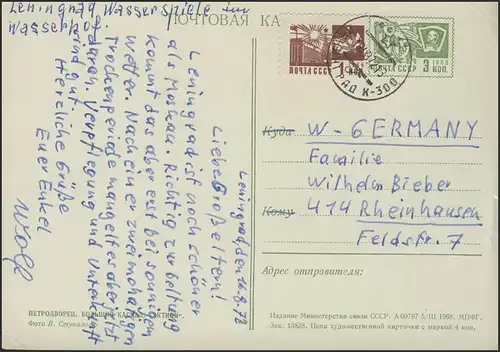 Leningrad Wasserspiele im
Wasserhof.
ПОЧТОВАЯ КА
Leningrad, den 26.8.72
Liebe Großeltern!
Leningrad ist noch schöner
als Moskau. Richtig zur Geltung
kommt das aber erst bei sonnigem
Wetter. Nach einer zweimonatigen
Trockenperiode mangelte es aber jetzt
daran. Verpflegung und Unterkunft
sind gut.
Herzliche Grüße
Euer Enkel
Wolf
ПОЧТА СССР
1 КОП
3 КОП.
1966
К-300
Куда
W-GERMANY
Familie
Wilhelm Bieber
Кому
414 Rheinhausen
Feldstr. 7
Адрес отправителя:
ПЕТРОДВОРЕЦ. БОЛЬШОЙ КАСКАД.
Фото В. Стукалова
Издание Министерства связи СССР. А 09787 5/III 1968. МПФГ.
Зак. 13838. Цена художественной карточки с маркой 4 коп.